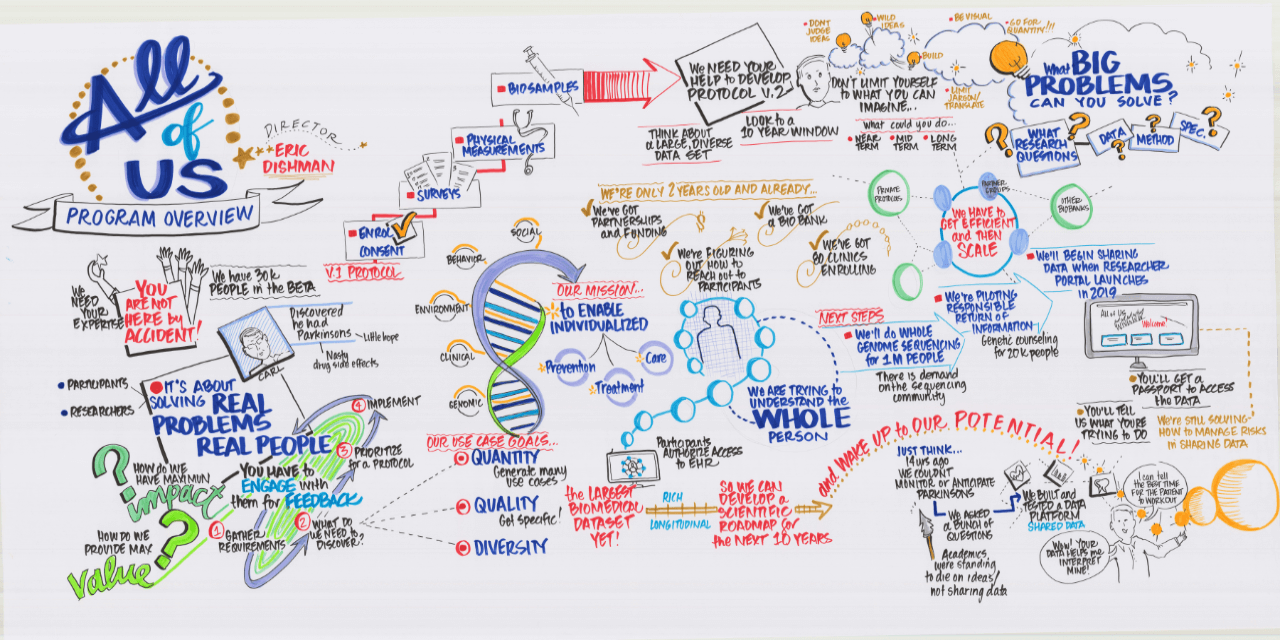 All
of
US
PROGRAM OVERVIEW
DIRECTOR
ERIC
DISHMAN
WE NEED YOUR EXPERTISE
YOU
ARE NOT
HERE by
ACCIDENT!
We have 30K
PEOPLE in the BETA
CARL
Discovered
he had
Parkinsons
Little hope
Nasty
drug side effects
PARTICIPANTS
RESEARCHERS
IT'S ABOUT
SOLVING REAL
PROBLEMS
REAL PEOPLE
YOU HAVE to
ENGAGE with
them for FEEDBACK
HOW DO WE
HAVE MAXIMUM
impact
HOW DO WE
PROVIDE MAX
value
1 GATHER
REQUIREMENTS
2 WHAT DO
WE NEED TO
DISCOVER?
3 PRIORITIZE
for A PROTOCOL
4 IMPLEMENT
V.1 PROTOCOL
ENROLL
CONSENT
SURVEYS
PHYSICAL
MEASUREMENTS
BIOSAMPLES
WE NEED YOUR
HELP to DEVELOP
PROTOCOL V.2
THINK ABOUT
A LARGE, DIVERSE
DATA SET
LOOK to A
10 YEAR WINDOW
DON'T
JUDGE
IDEAS
WILD
IDEAS
BUILD
BE VISUAL
GO FOR
QUANTITY!!!
LIMIT
JARGON/
TRANSLATE
DON'T LIMIT YOURSELF
to WHAT YOU CAN
IMAGINE...
What could you do...
NEAR
TERM
MID
TERM
LONG
TERM
What BIG
PROBLEMS
CAN YOU SOLVE?
WHAT
RESEARCH
QUESTIONS
?
DATA
?
METHOD
?
SPEC.
?
SOCIAL
BEHAVIOR
ENVIRONMENT
CLINICAL
GENOMIC
OUR MISSION...
to ENABLE
INDIVIDUALIZED
Prevention
Treatment
Care
WE'RE ONLY 2 YEARS OLD AND ALREADY...
WE'VE GOT
PARTNERSHIPS
and FUNDING
WE'VE GOT
a BIO BANK
WE'RE FIGURING
OUT HOW to
REACH OUT to
PARTICIPANTS
WE'VE GOT
80 CLINICS
ENROLLING
PRIVATE
PROTOCOLS
PARTNER
GROUPS
OTHER
BIOBANKS
WE HAVE to
GET EFFICIENT
and THEN
SCALE
WE'LL BEGIN SHARING
DATA WHEN RESEARCHER
PORTAL LAUNCHES
in 2019
NEXT STEPS
We'll do WHOLE
GENOME SEQUENCING
for 1 M PEOPLE
There is demand
on the sequencing
community
WE'RE PILOTING
RESPONSIBLE
RETURN OF
INFORMATION
Genetic counseling
for 20K people
Welcome!
YOU'LL GET a
PASSPORT to ACCESS
the DATA
YOU'LL TELL
US WHAT YOU'RE
TRYING to DO
WE'RE STILL SOLVING
HOW to MANAGE RISKS
in SHARING DATA
WE ARE TRYING to
UNDERSTAND the
WHOLE
PERSON
Participants
AUTHORIZE ACCESS
to EHR
OUR USE CASE GOALS...
QUANTITY
Generate many
use cases
QUALITY
Get specific!
DIVERSITY
the LARGEST
BIOMEDICAL
DATASET
YET!
RICH
LONGITUDINAL
SO WE CAN
DEVELOP a
SCIENTIFIC
ROADMAP for
the NEXT 10 YEARS
and WAKE UP to OUR POTENTIAL!
JUST THINK...
14 yrs ago
WE COULDN'T
MONITOR or ANTICIPATE
PARKINSONS
WE ASKED
A BUNCH of
QUESTIONS
WE BUILT and
TESTED a DATA
PLATFORM
SHARED DATA
Academics
were standing
to die on ideas/
not sharing data
I can tell
the BEST TIME
FOR THE PATIENT
to WORKOUT
WOW! YOUR
DATA HELPS me
INTERPRET
MINE!